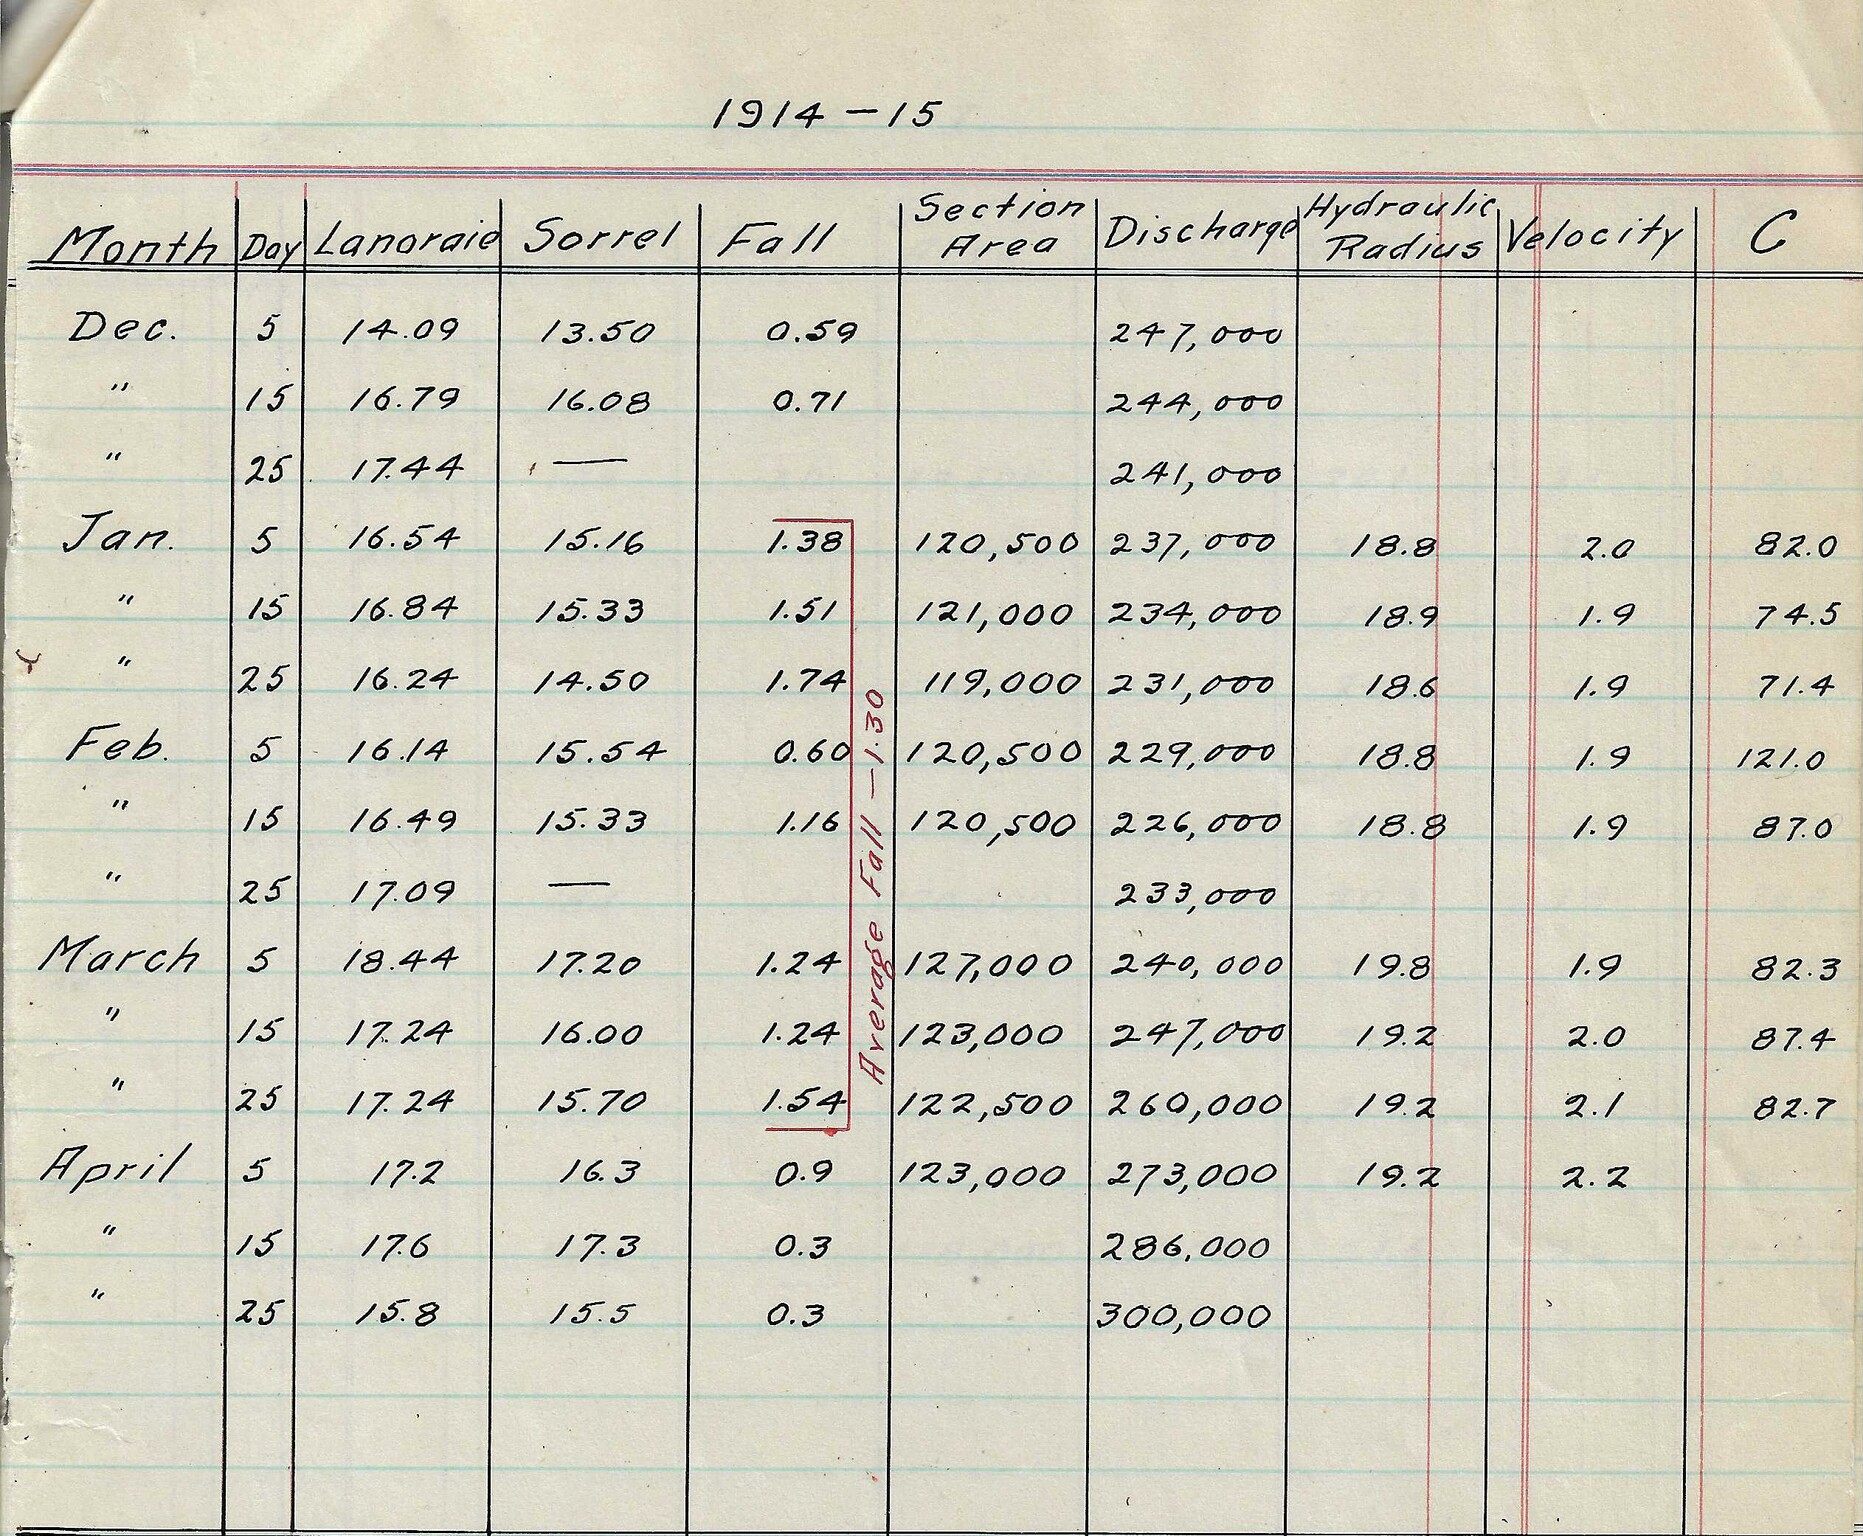 1914-15
Month Day Lanoraie Sorrel Fall Section Area Discharge Hydraulic Radius Velocity C
Dec. 5 14.09 13.50 0.59 247,000
" 15 16.79 16.08 0.71 244,000
" 25 17.44 — 241,000
Jan. 5 16.54 15.16 1.38 120,500 237,000 18.8 2.0 82.0
" 15 16.84 15.33 1.51 121,000 234,000 18.9 1.9 74.5
" 25 16.24 14.50 1.74 119,000 231,000 18.6 1.9 71.4
Feb. 5 16.14 15.54 0.60 120,500 229,000 18.8 1.9 121.0
" 15 16.49 15.33 1.16 120,500 226,000 18.8 1.9 87.0
" 25 17.09 — 233,000
March 5 18.44 17.20 1.24 127,000 240,000 19.8 1.9 82.3
" 15 17.24 16.00 1.24 123,000 247,000 19.2 2.0 87.4
" 25 17.24 15.70 1.54 122,500 260,000 19.2 2.1 82.7
April 5 17.2 16.3 0.9 123,000 273,000 19.2 2.2
" 15 17.6 17.3 0.3 286,000
" 25 15.8 15.5 0.3 300,000
Average Fall — 1.30